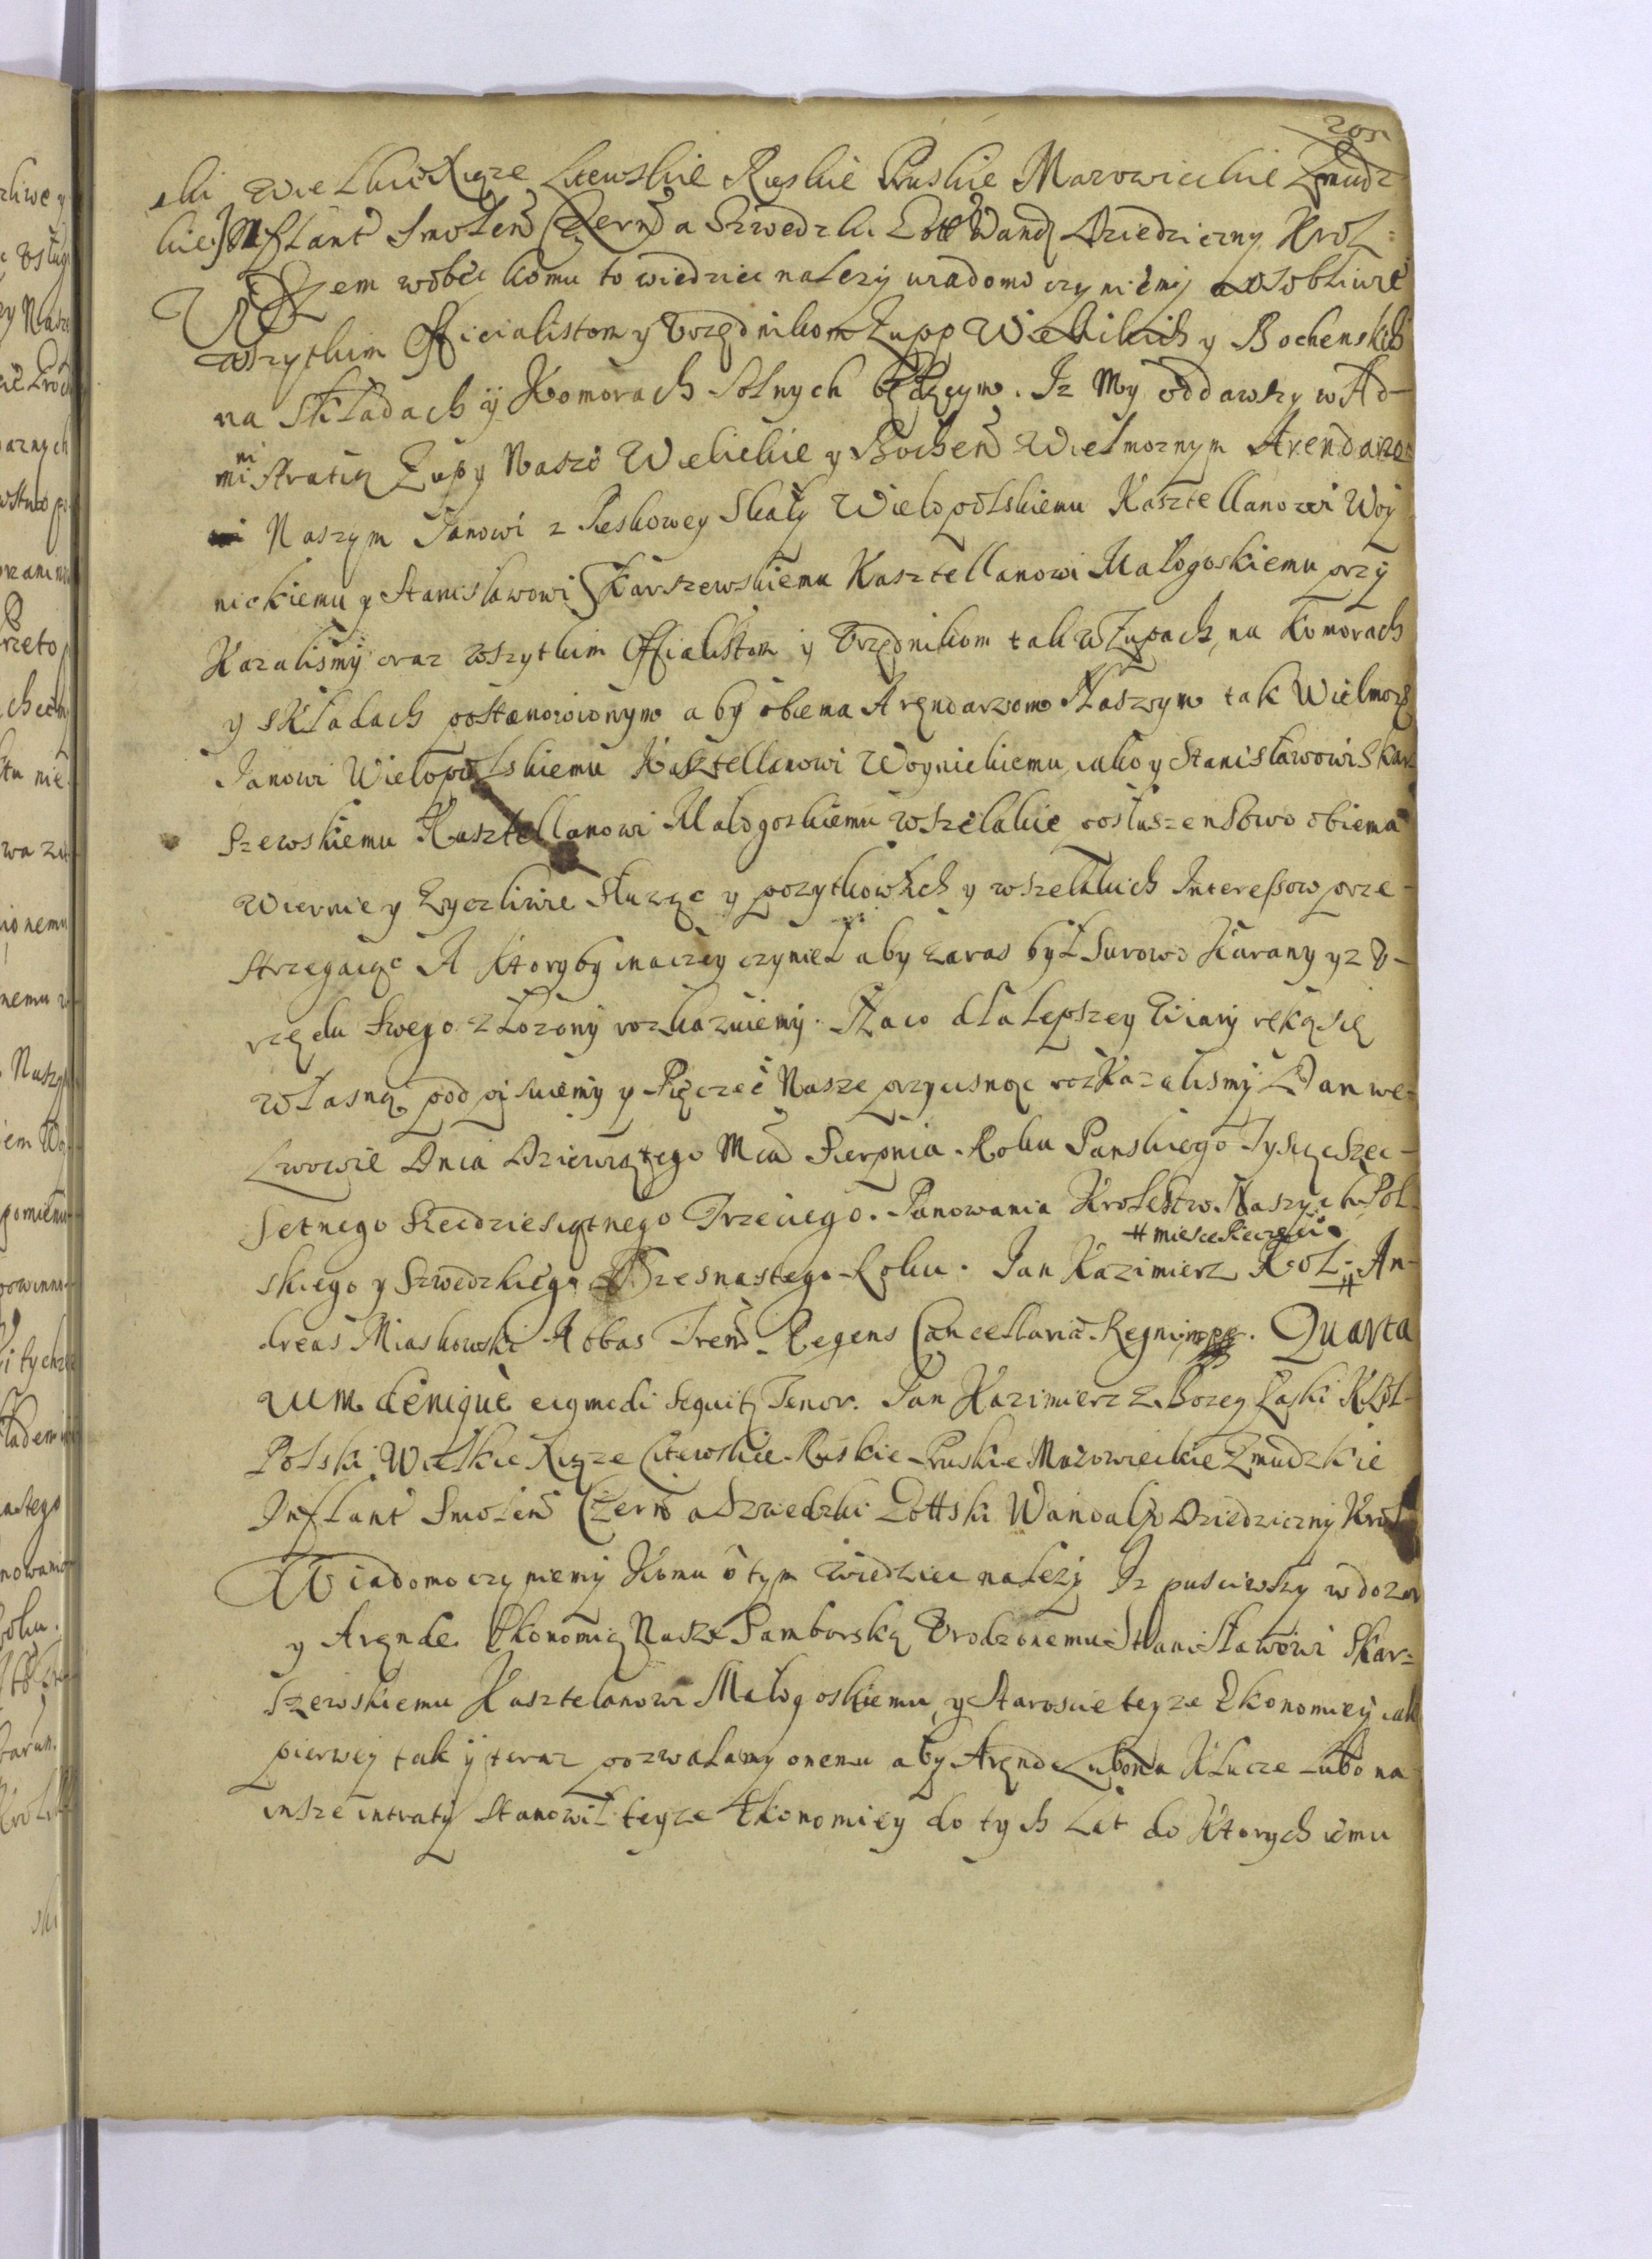 ski Wielkie Xiąze Litewskie Ruskie Pruskie Mazowieckie Zmudz
kie Inflant Smolen Czern a Szwedzki Gott Wand Dziedziczny Krol:
Wszem wobec komu to wiedziec nalezy wiadomo czyniemy a osobliwie
wszytkim Officialistom y Vrzędnikom Zupp Wielickich y Bochenskich
na Składach ÿ Komorach Solnych będącym. Iz My oddawszy w Ad-
ministratią Zupy Nasze Wielickie y Bochen Wielmoznym Arendarzo
Naszym Janowi z Pieskowey Skały Wielopolskiemu Kasztellanowi Woy
nickiemu y Stanisławowi Skarszewskiemu Kasztellanowi Małogoskiemu przy
Kazalismy oraz wszytkim Officialistom y Vrzędnikom tak w Zupach, na Komorach
y Składach postanowionym aby obiema Arędarzom Naszym tak Wielmoz
Janowi Wielopolskiemu Kasztellanowi Woynickiemu, iako y Stanisławowi Skar
szewskiemu Kasztellanowi Małogoskiemu wszelakie posłuszenstwo obiema
wiernie y zyczliwie Słuząc y pozytkow Ich y wszelakich Interessow prze-
strzegaiąc A Ktoryby inaczey czynieł aby zaras był Surowo Karany y z V-
rzędu Swego złozony rozkazuiemy. Na co dla lepszey Wiary ręką się
własną podpisuiemy y Pieczęć Nasze przycisnąc rozkazalismy Dan we
Lwowie Dnia Dziewiątego Mca Sierpnia Roku Panskiego Tysiąc Szec-
setnego Szecdziesiątnego Trzeciego. Panowania Krolestw Naszych Pol
# miesce Pieczęci
skiego y Szwedzkiego Szesnastego Roku. Jan Kazimierz Krol # An-
dreas Miaskowski Abbas Trem Regens Cancellariae Regni mpp. Quarta
rum denique eiqmodi sequit Tenor. Jan Kazimierz z Bozey Łaski Krol
Polski Wielkie Xiąze Litewskie Ruskie Pruskie Mazowieckie Zmudzkie
Inflant Smolen Czern a Szwedzki Gottski Wandalx Dziedziczny Krol
Wiadomo czyniemy Komu o tym wiedziec nalezy Iz pusciwszy w dozor
y Arędę Ekonomią Nasze Samborską Vrodzonemu Stanisławowi Skar=
szewskiemu Kasztelanowi Małogoskiemu, y Staroscie teyze Ekonomiey iak
pierwey tak ÿ teraz pozwalamy onemu aby Arędę Lubo na Klucze Lubo na
insze intraty stanowił teyze Ekonomiey do tych Lat do Ktorych iemu